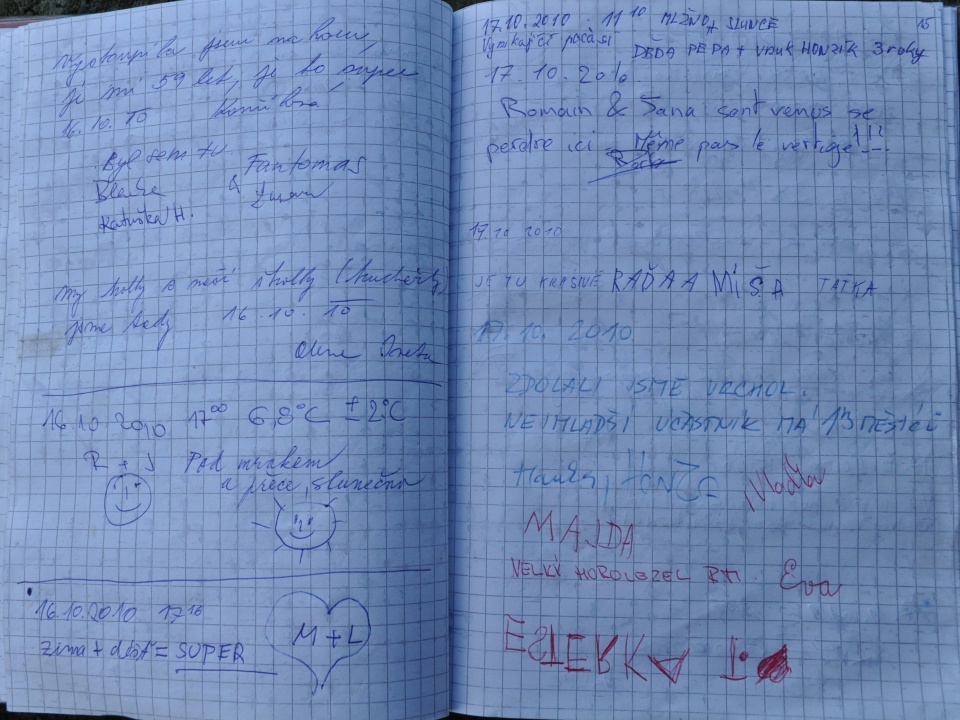 Vystoupila jsem na horu,
je mi 59 let, je to super
16.10.10
Byl sem tu Fantomas
Blanka &
Katuška H.
my holky a naší školky
jsme tady 16.10.10
16.10.2010 17⁰⁰ 6,8°C ±2°C
R + J Pod mrakem
a přece slunečno
16.10.2010 17¹⁰
zima + déšť = SUPER
M + L
15
17.10.2010 11¹⁰ MLŽNO, SLUNCE
Vynikající počasí DĚDA PEPA + VNUK HONZÍK 3 roky
17.10.2010
Romain & Jana sont venus se
perdre ici Même pas le vertige!!?
17.10 2010
JE TU KRÁSNĚ RAĎA A MÍŠA TAŤKA
17.10.2010
ZDOLALI JSME VRCHOL.
NEJMLADŠÍ ÚČASTNÍK MÁ 13 MĚSÍCŮ
HONZA, Maďla
MAJDA
VELKÝ HOROLEZEC Eva
ESTERKA